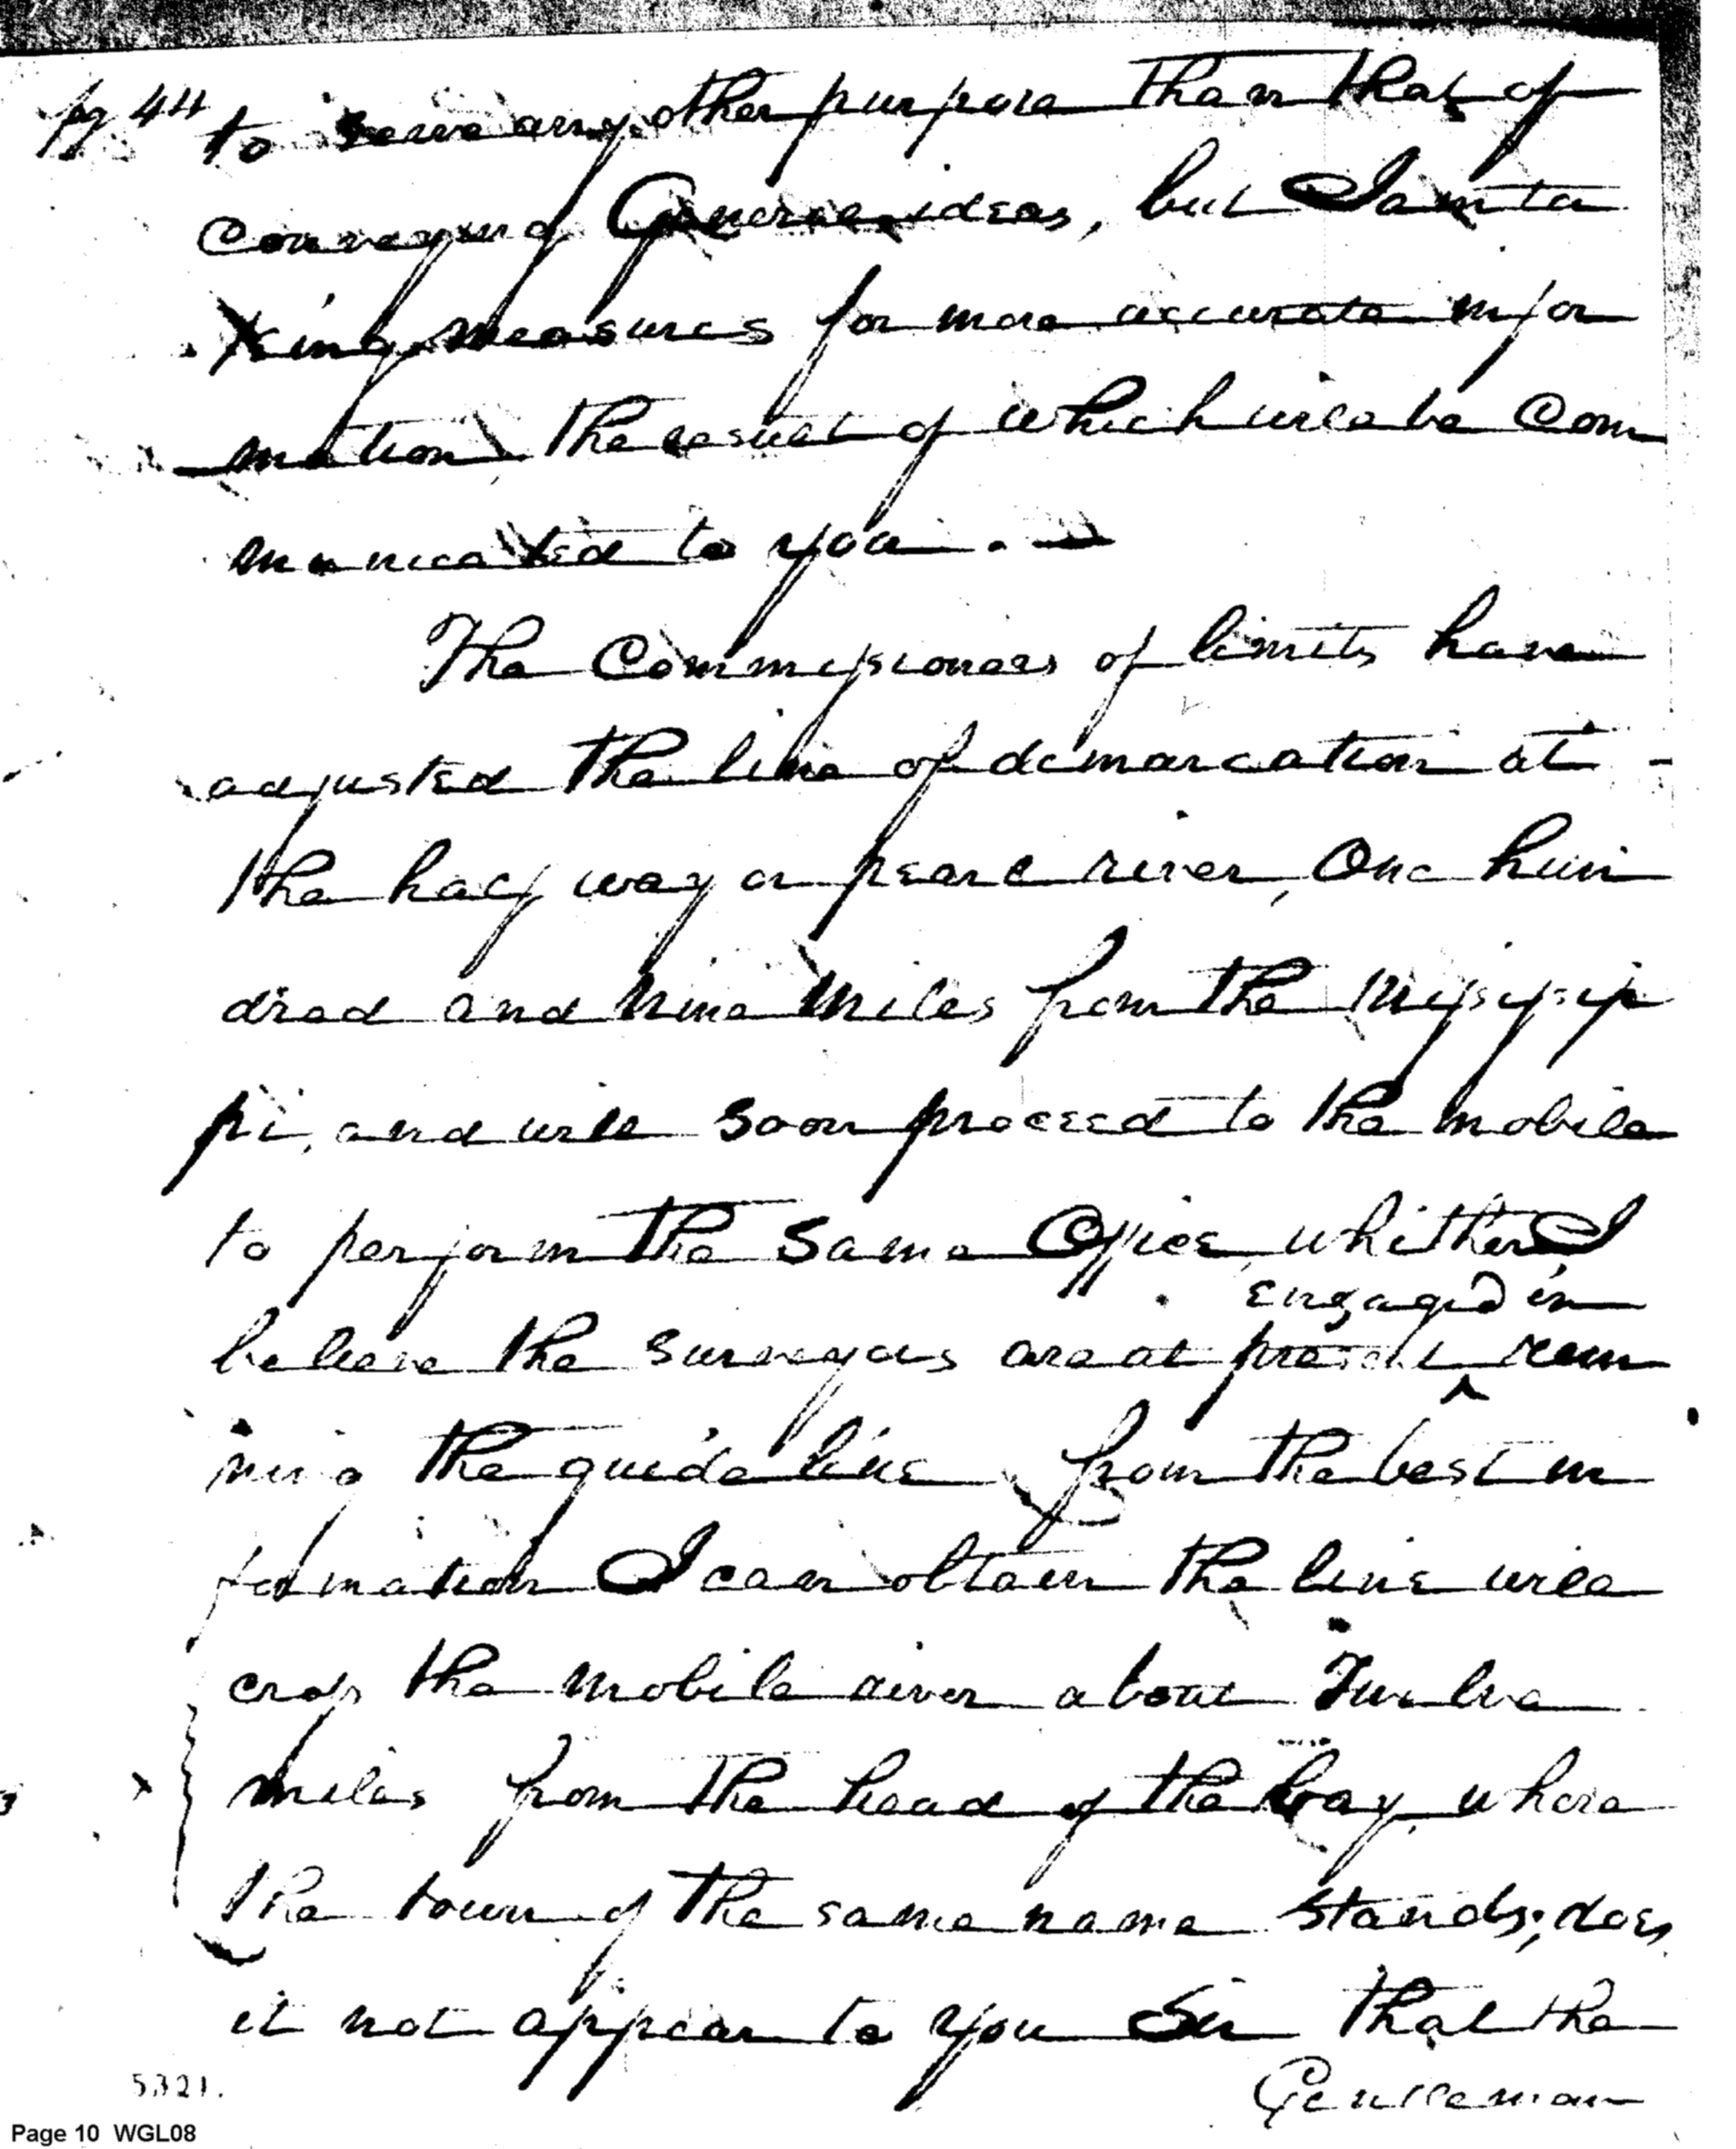 pg 44
to serve any other purpose than that of
conveying General ideas, but I am ta
king measures for more accurate infor
mation the result of which will be Com
municated to you. —
The Commissioners of limits have
adjusted the line of demarcation at -
the half way or pearl river, One hun
dred and nine miles from the Missisip
pi, and will soon proceed to the mobile
to perform the same Office, whither I
engaged in
believe the surveyors are at present ^ runn
ning the guide line from the best in
formation I can obtain the line will
cross the mobile river about Twelve
miles from the head of the bay, where
the town of the same name stands; does
it not appear to you Sir that the
Gentleman
5321.
Page 10 WGL08